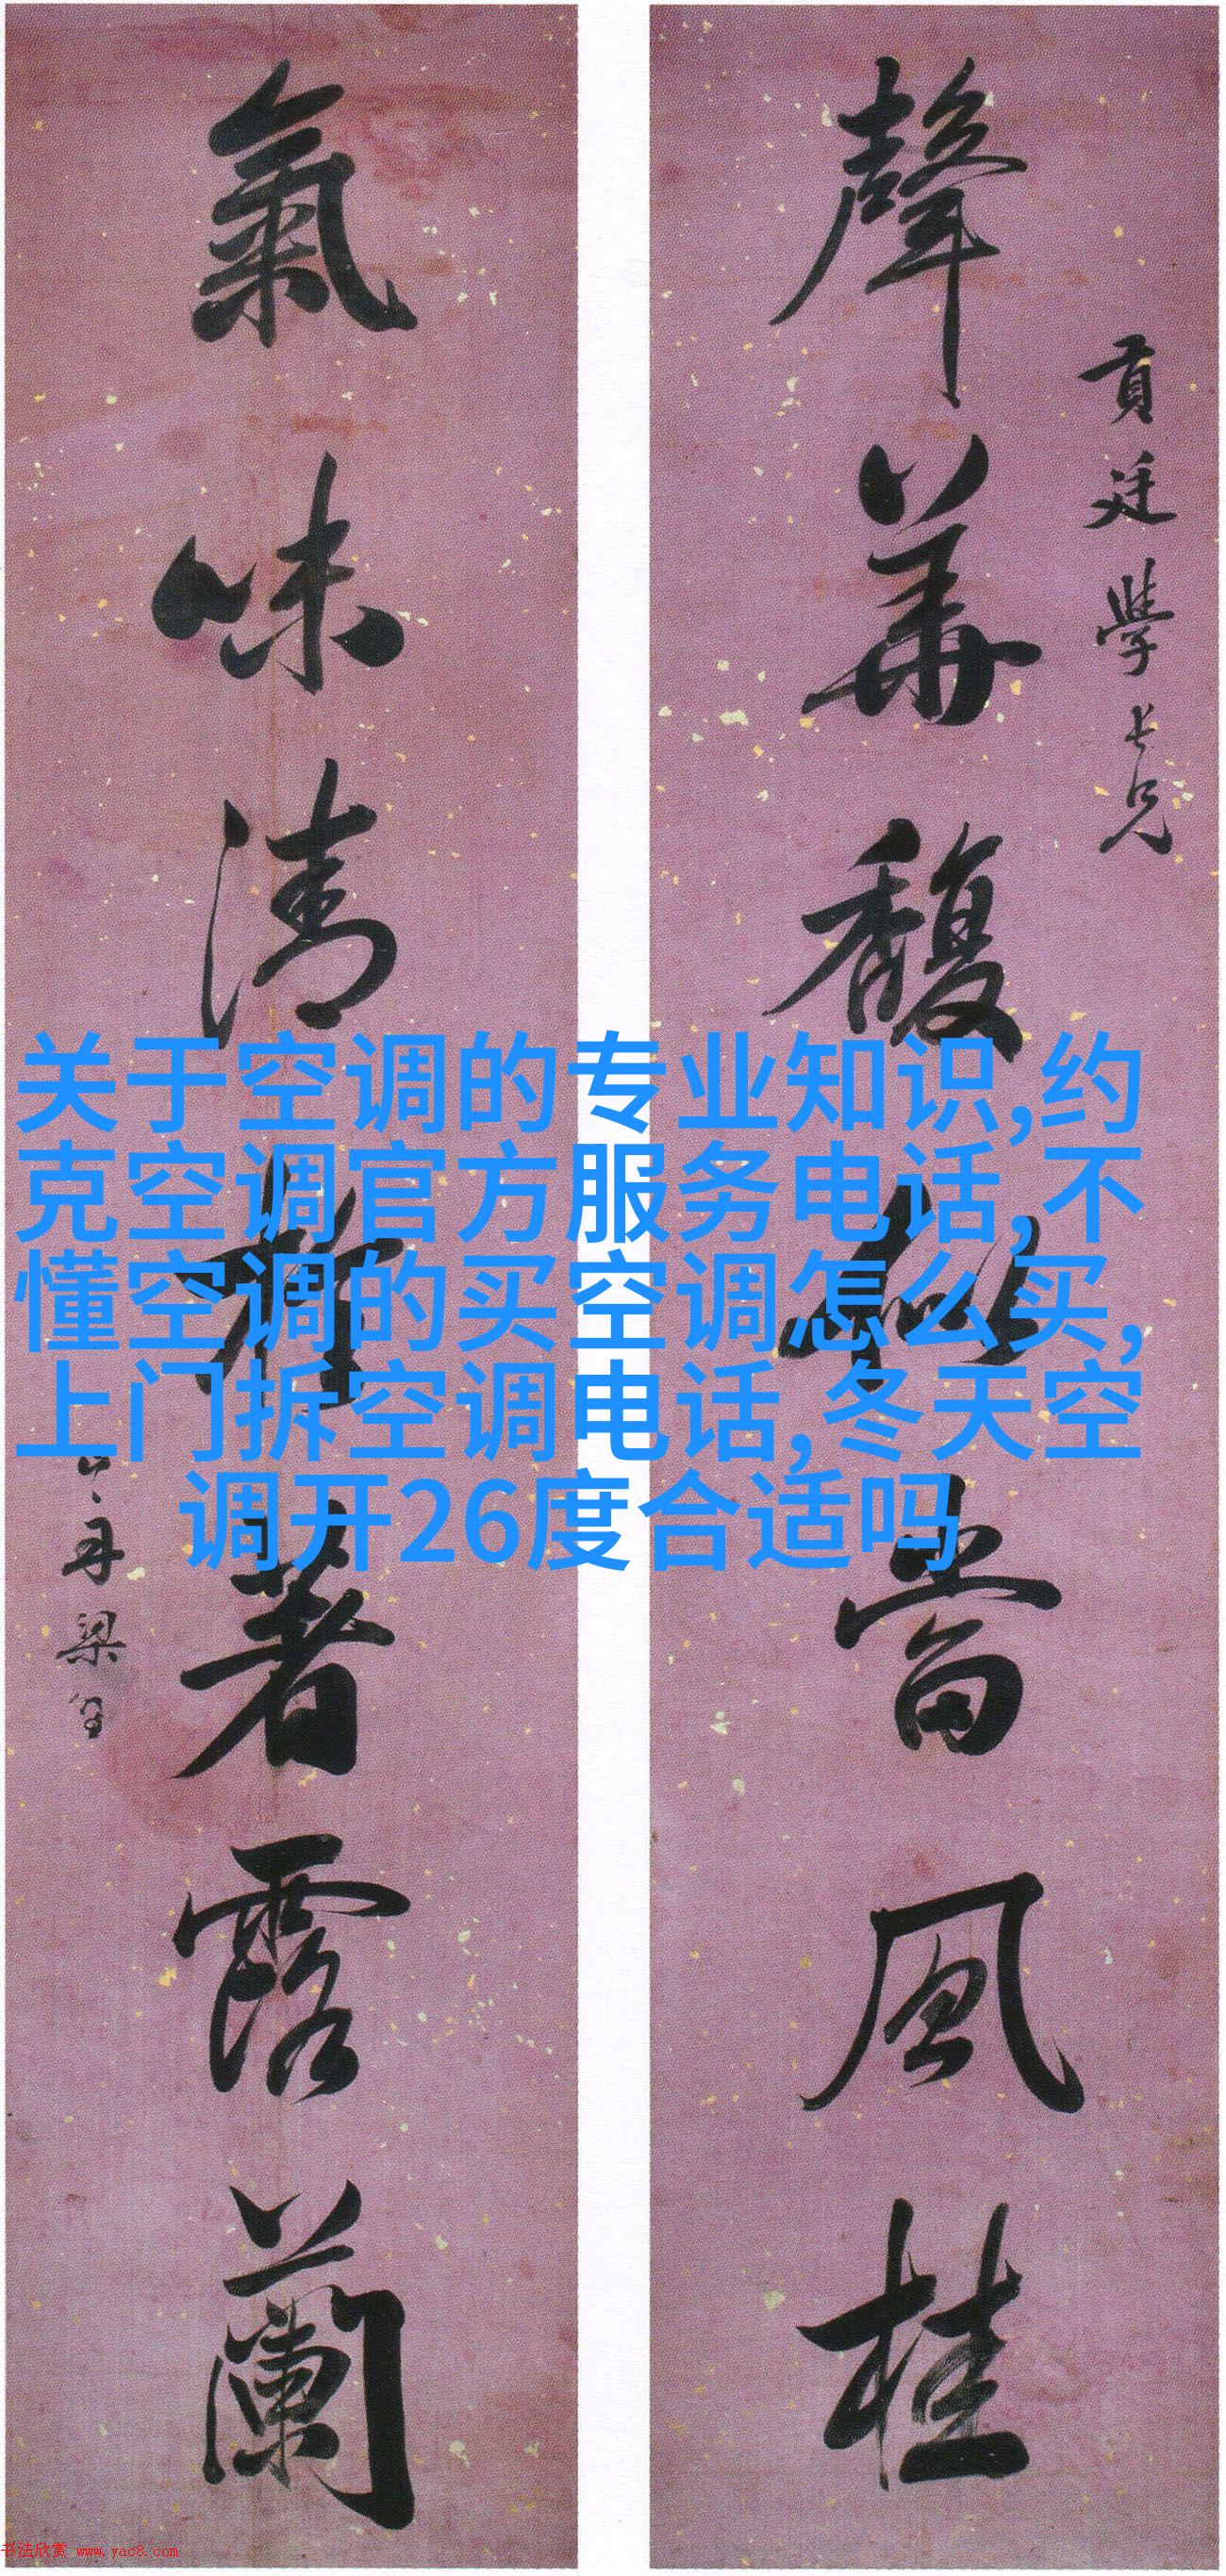 聲華馥比當風桂
貢廷學長兄
氣味清著露蘭
梁
关于空调的专业知识,约
克空调官方服务电话,不
懂空调的买空调怎么买,
上门拆空调电话,冬天空
调开26度合适吗
书法欣赏 www.yac8.com